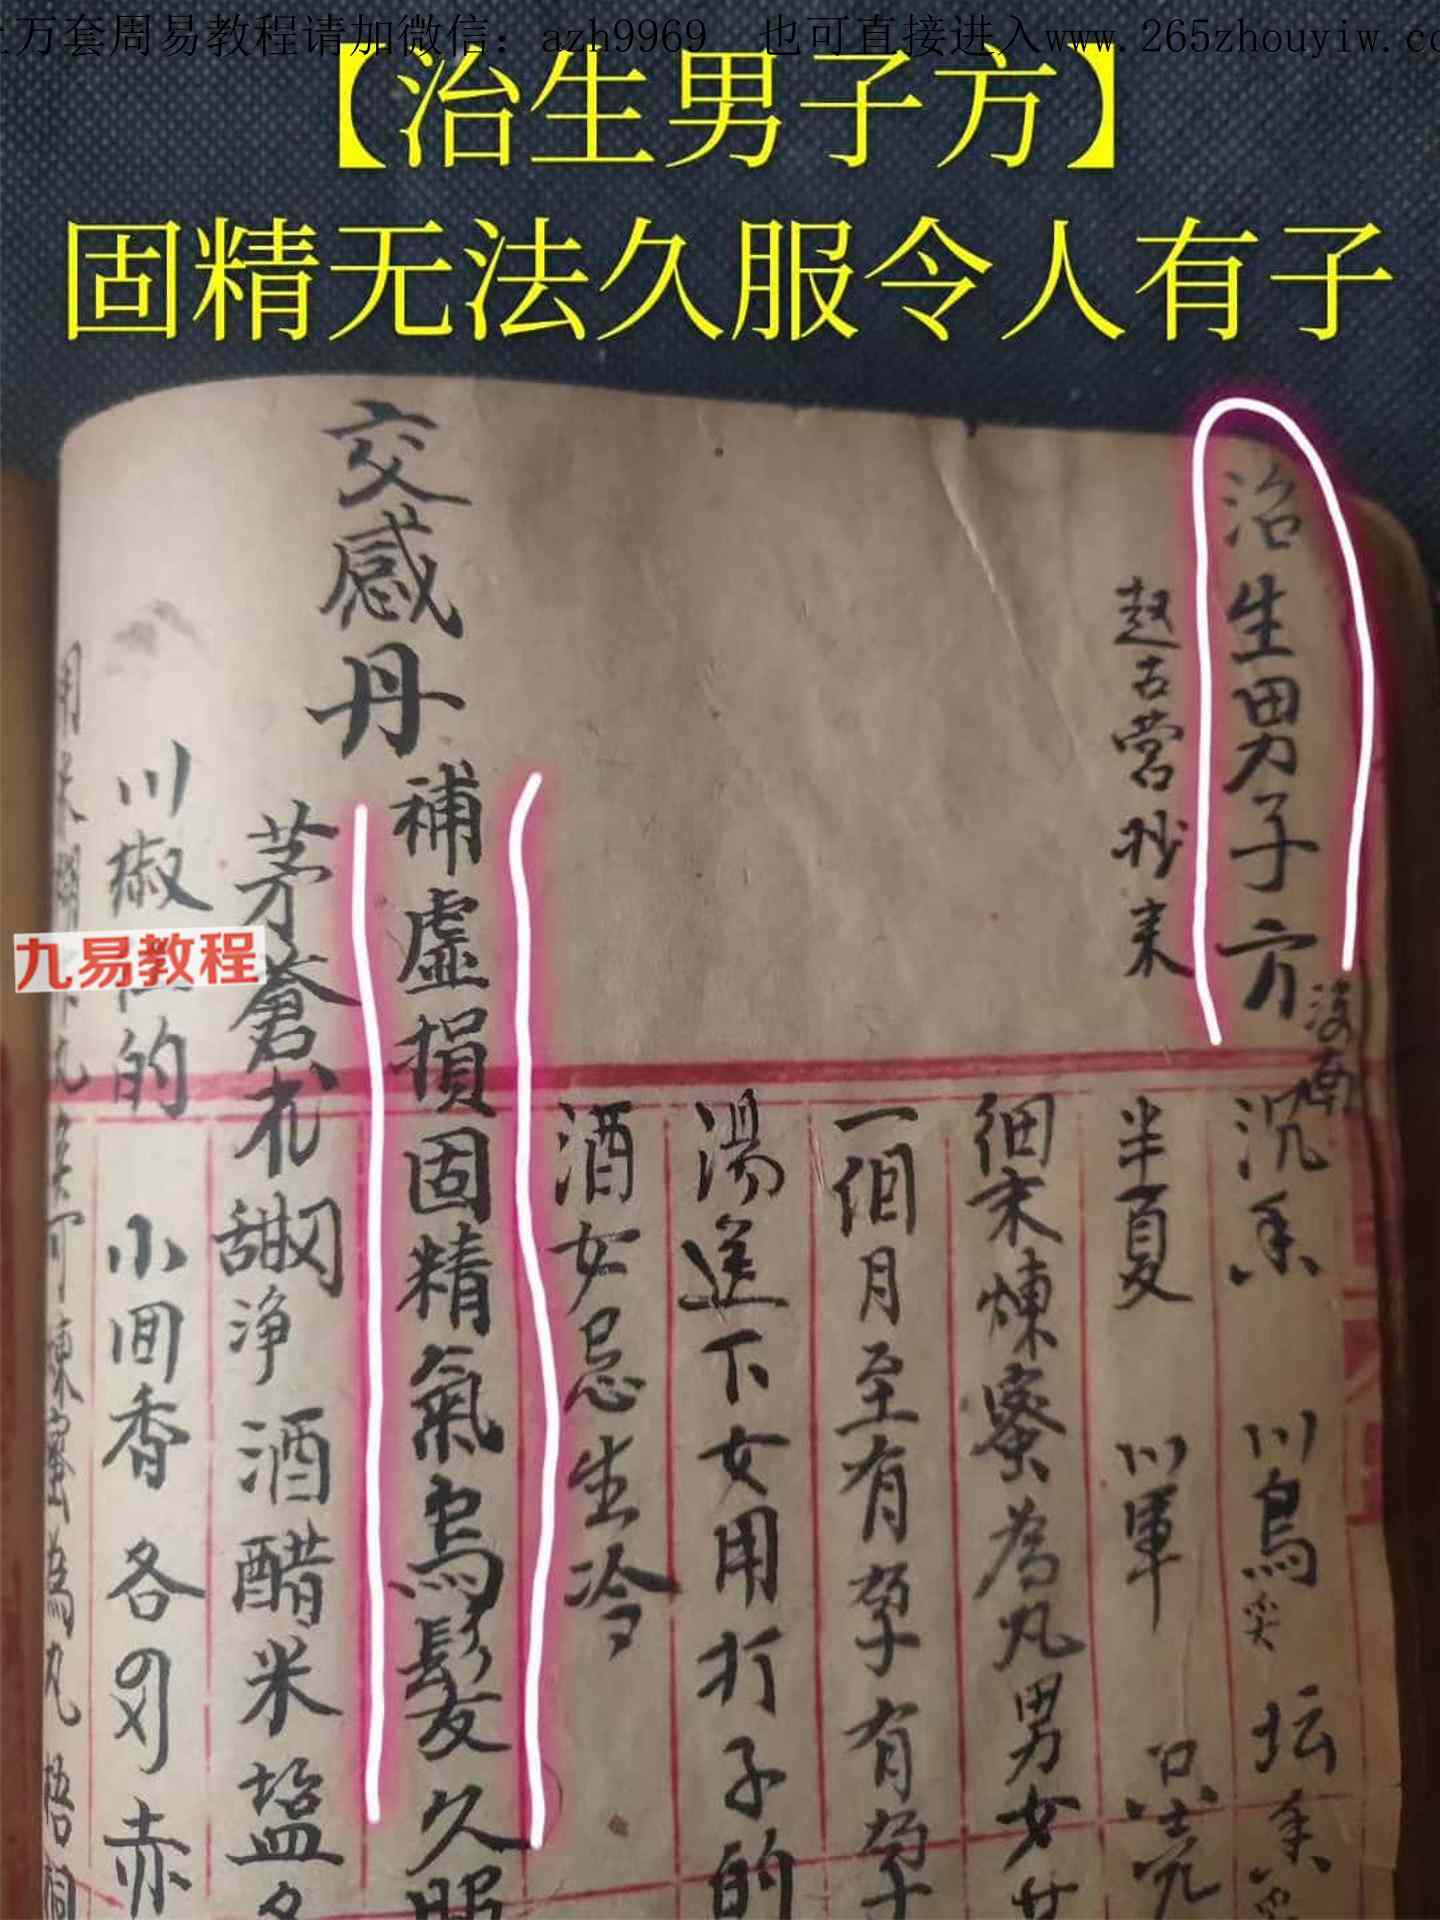 万套周易教程请加微信：azh9969 也可直接进入www.265zhouyiw.co
【治生男子方】
固精无法久服令人有子
治生男子方
赵古营抄来
沉香 川烏尖 坛香
半夏 川軍
細末煉蜜為丸男女
一個月至有孕有孕
湯送下女用打子的
酒女忌生冷
交感丹
補虛損固精氣烏髮久服
茅蒼朮 净酒醋米塩各
川椒 的 小回香各 赤
九易教程
煉蜜為丸梧桐